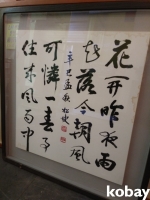 花開昨夜雨
花落今朝風
辛巳孟秋
可憐一春事
往來風雨中
kobay